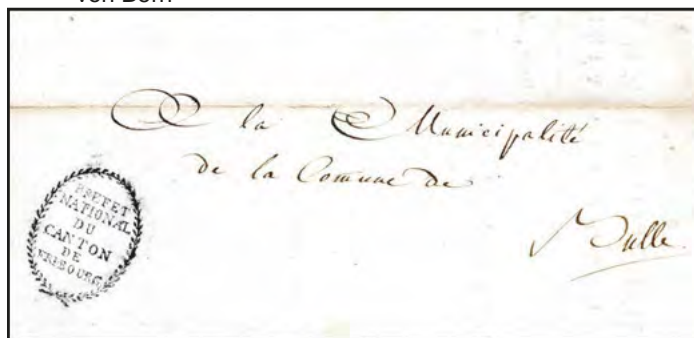 von Bern
A la Municipalité
de la Comune de
Bulle.
PREFET
NATIONAL
DU
CANTON
DE
FRIBOURG